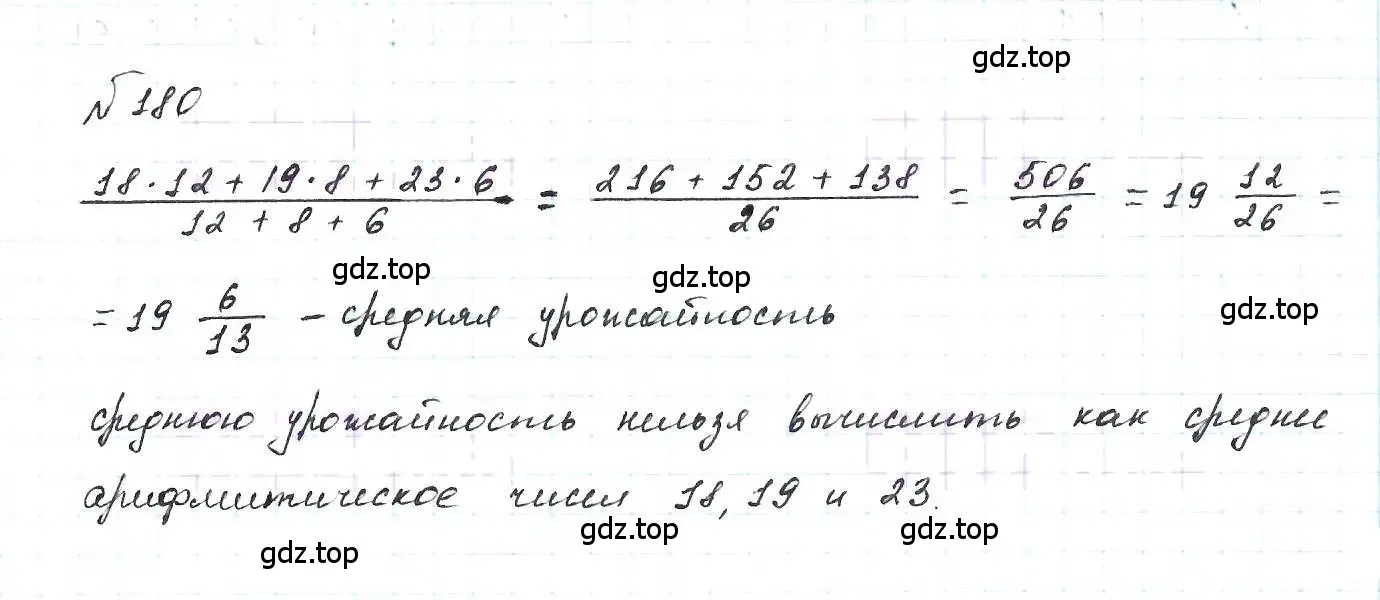 gdz.top
№ 180
(18·12 + 19·8 + 23·6)/(12 + 8 + 6) = (216 + 152 + 138)/26 = 506/26 = 19 12/26 =
gdz.top gdz.top
= 19 6/13 – средняя урожайность gdz.top
среднюю урожайность нельзя вычислить как среднее
арифметическое чисел 18, 19 и 23.
gdz.top gdz.top gdz.top